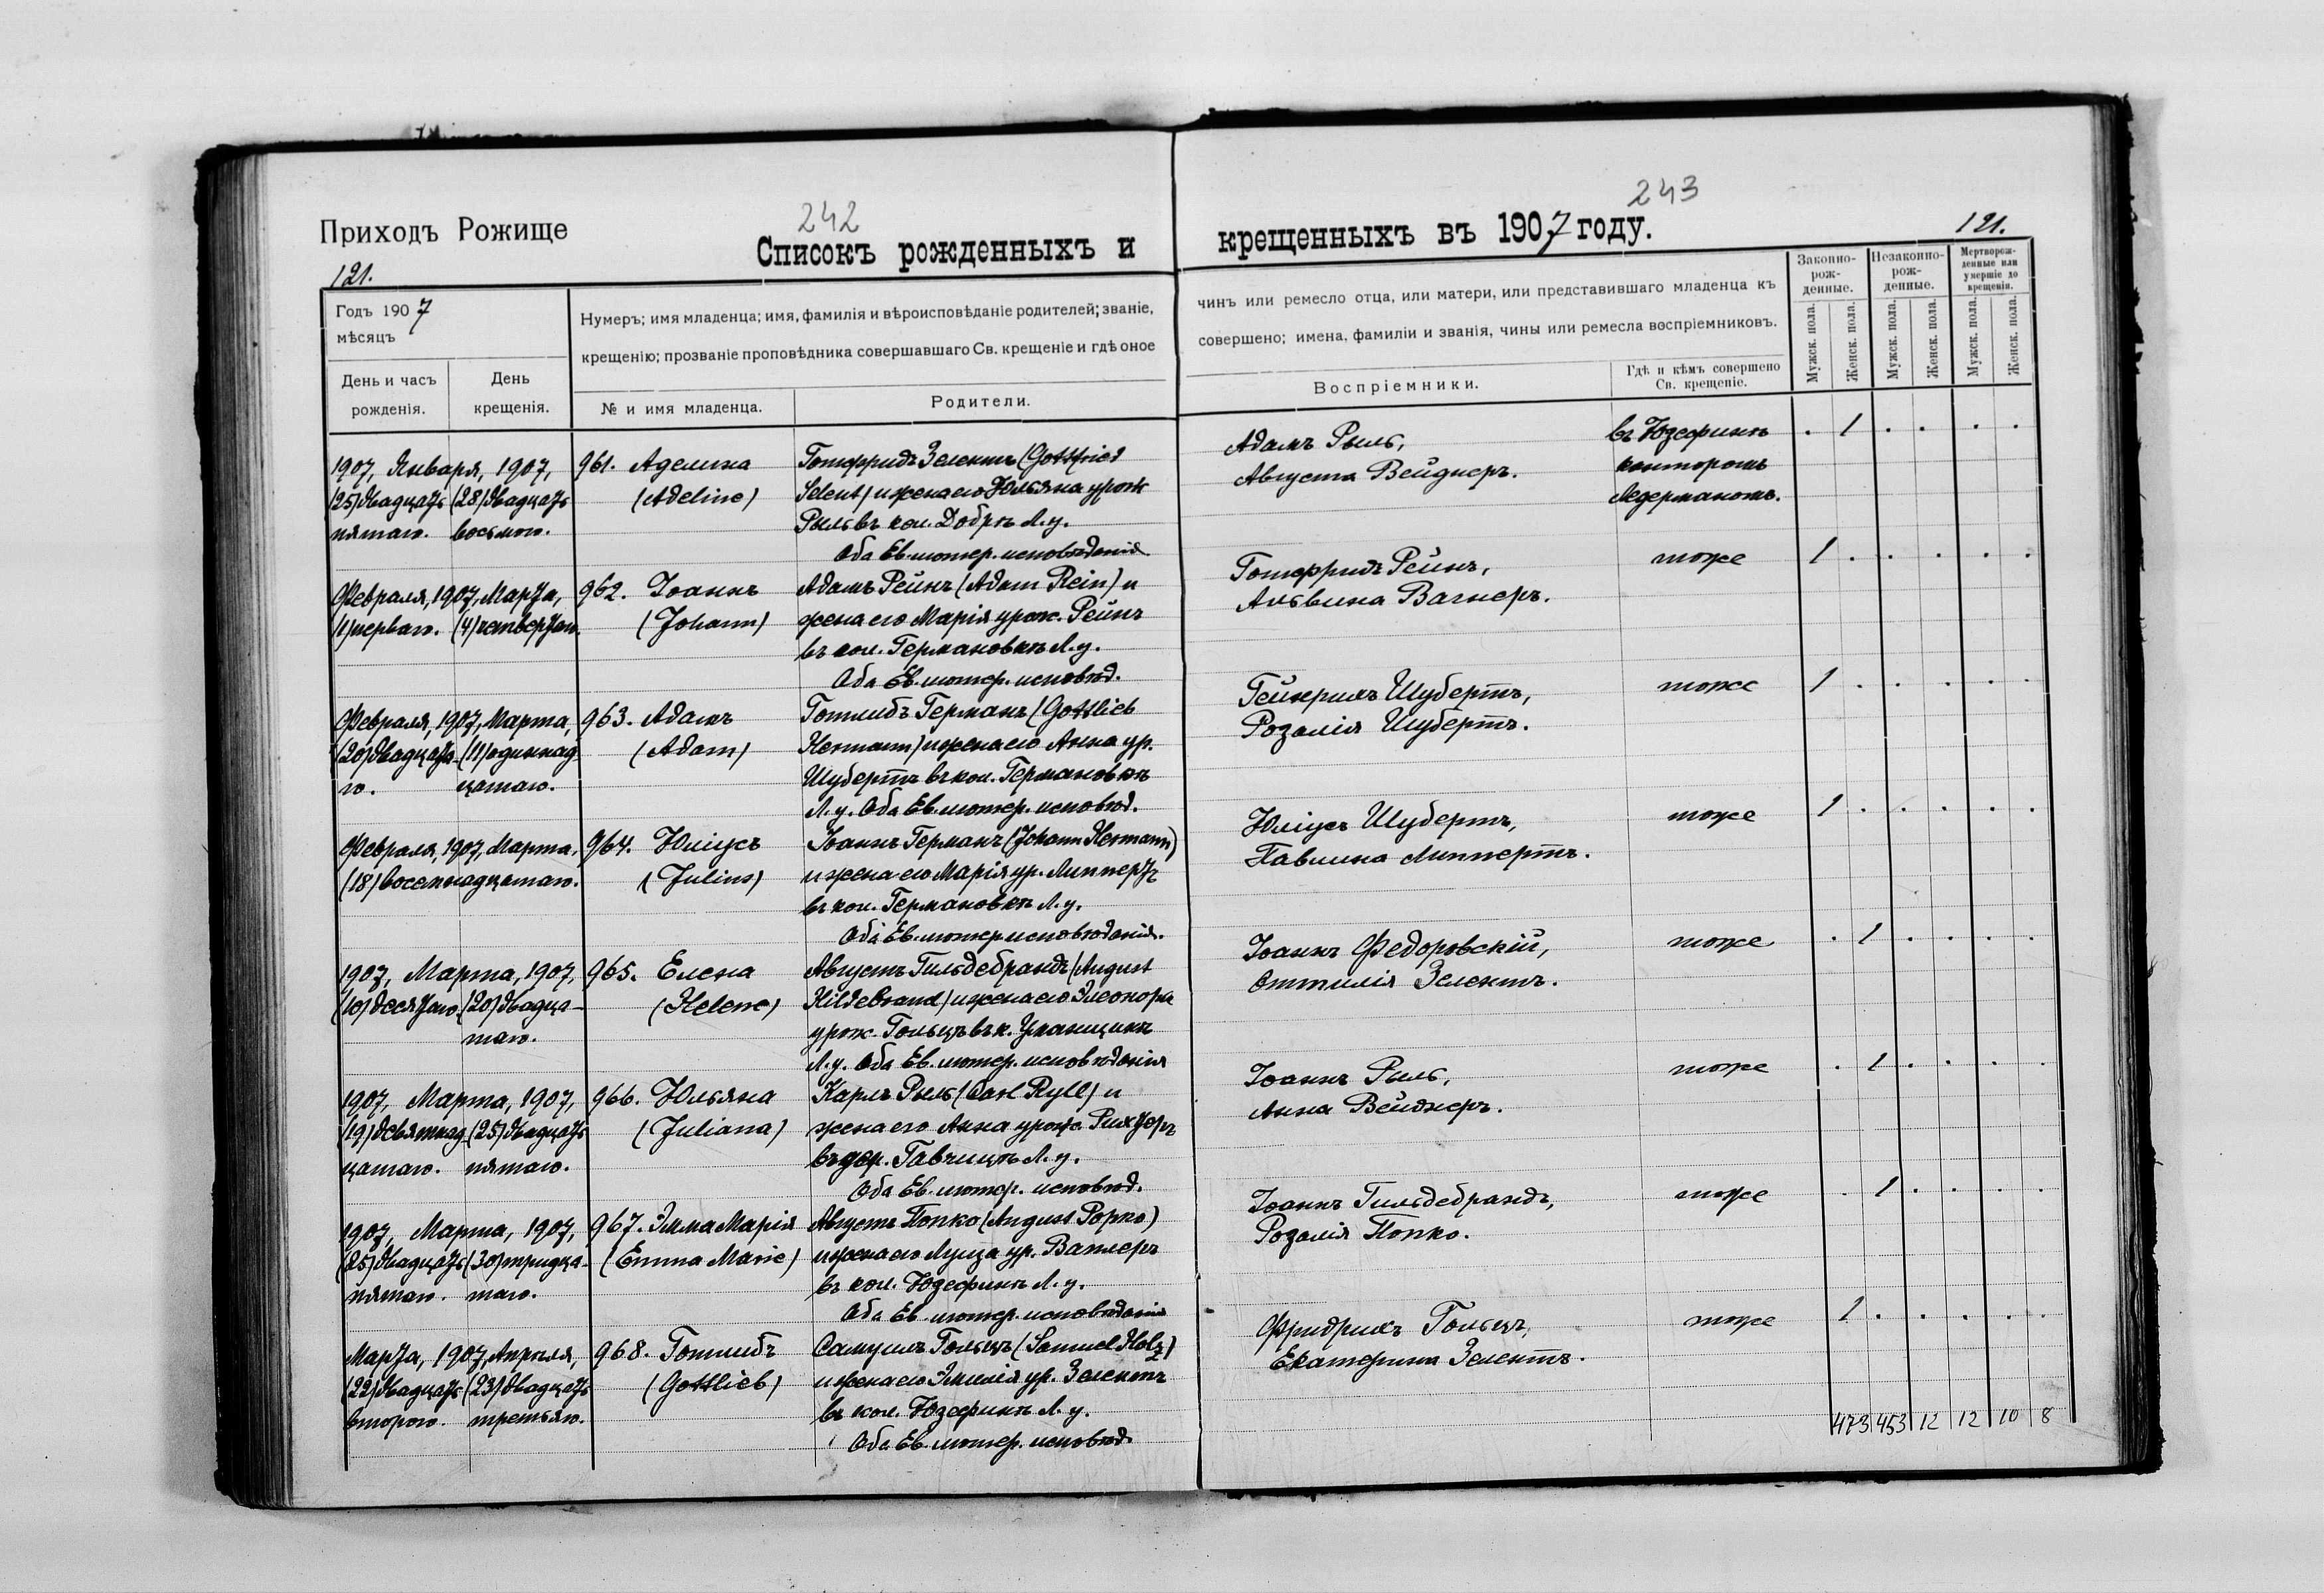 242
243
Приходъ Рожище
Списокъ рожденныхъ и
крещенныхъ въ 1907 году.
121.
121.
Годъ 1907
мѣсяцъ
День и часъ
рожденія.
День
крещенія.
Нумеръ; имя младенца; имя, фамилія и вѣроисповѣданіе родителей; званіе,
крещенію; прозваніе проповѣдника совершавшаго Св. крещеніе и гдѣ оное
№ и имя младенца.
Родители.
чинъ или ремесло отца, или матери, или представившаго младенца къ
совершено; имена, фамиліи и званія, чины или ремесла воспріемниковъ.
Воспріемники.
Гдѣ и кѣмъ совершено
Св. крещеніе.
Законно-
рож-
денные.
Незаконно-
рож-
денные.
Мертворож-
денные или
умершіе до
крещенія.
Мужск. пола.
Женск. пола.
Мужск. пола.
Женск. пола.
Мужск. пола.
Женск. пола.
1907, Января, 1907,
(25) двадцать (28) двадцать
пятаго. восьмого.
961. Аделина
(Adeline)
Готфридъ Зелентъ (Gottfried
Selent) и жена его Юльяна урож
Рыль въ кол. Добрѣ Л.у.
Оба Ев. лютер. исповѣданія
Адамъ Рыль,
Августа Вейднеръ.
въ Юзефинѣ
канторомъ
Ледерманомъ.
. 1 . . . .
Февраля, 1907, Марта,
(1) перваго. (4) четвертаго.
962. Іоаннъ
(Johann)
Адамъ Рейнъ (Adam Rein) и
жена его Марія урож. Рейнъ
въ кол. Германовкѣ Л.у.
Оба Ев. лютер. исповѣд.
Готфридъ Рейнъ,
Альвина Вагнеръ.
тоже
1 . . . . .
Февраля, 1907, Марта,
(20) двадцата- (11) одиннад-
го. цатаго.
963. Адамъ
(Adam)
Готлибъ Германъ (Gottlieb
Hermann) и жена его Анна ур.
Шубертъ въ кол. Германовкѣ
Л.у. Оба Ев. лютер. исповѣд.
Гейнрихъ Шубертъ,
Розалія Шубертъ.
тоже
1 . . . . .
Февраля, 1907, Марта.
(18) восемнадцатаго.
964. Юліусъ
(Julius)
Іоаннъ Германъ (Johann Hermann)
и жена его Марія ур. Липпертъ
въ кол. Германовкѣ Л.у.
Оба Ев. лютер. исповѣданія.
Юліусъ Шубертъ,
Павлина Липпертъ.
тоже
1 . . . . .
1907, Марта, 1907,
(10) десятаго. (20) двадца-
таго.
965. Елена
(Helene)
Августъ Гильдебрандъ (August
Hildebrand) и жена его Элеонора
урож. Гольцъ въ к.
Л.у. Оба Ев. лютер. исповѣданія
Іоаннъ Федоровскій,
Оттилія Зелентъ.
тоже
. 1 . . . .
1907, Марта, 1907,
(19) девятнад- (25) двадцать
цатаго. пятаго.
966. Юльяна
(Juliana)
Карлъ Рыль (Carl Ryll) и
жена его Анна урож. Рихтеръ
въ дер. Гавчицѣ Л.у.
Оба Ев. лютер. исповѣд.
Іоаннъ Рыль,
Анна Вейднеръ.
тоже
. 1 . . . .
1907, Марта, 1907,
(25) двадцать (30) тридца-
пятаго. таго.
967. Эмма Марія
(Emma Marie)
Августъ Попко (August Popko)
и жена его Луиза ур.
въ кол. Юзефинѣ Л.у.
Оба Ев. лютер. исповѣданія
Іоаннъ Гильдебрандъ,
Розалія Попко.
тоже
. 1 . . . .
Марта, 1907, Апрѣля,
(22) двадцать (23) двадцать
второго. третьяго.
968. Готлибъ
(Gottlieb)
Самуилъ Гольцъ (Samuel Holz)
и жена его Эмилія ур. Зелентъ
въ кол. Юзефинѣ Л.у.
Оба Ев. лютер. исповѣд.
Фридрихъ Гольцъ,
Екатерина Зелентъ.
тоже
1 . . . . .
473 453 12 12 10 8